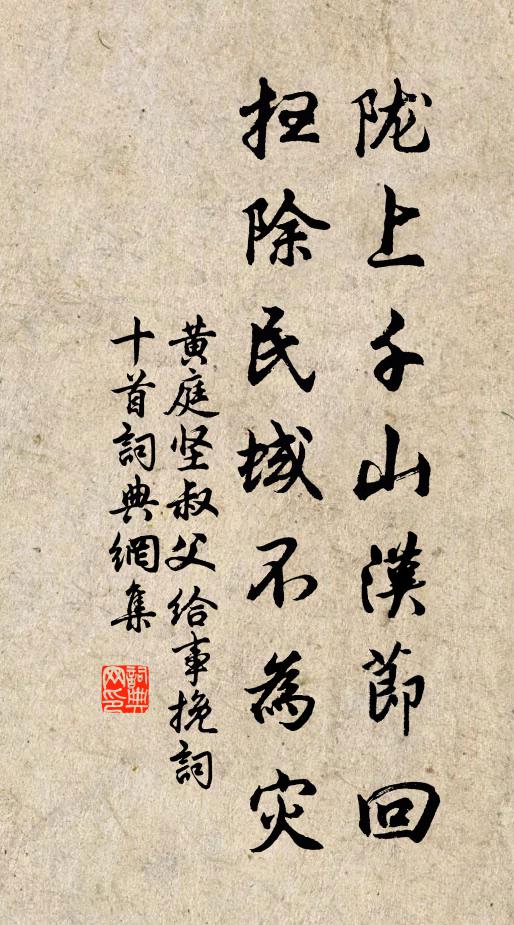 陇上千山漢節回
扫除民蜮不為灾
黄庭坚叔父给事挽詞
十首詞典網集
詞典网印